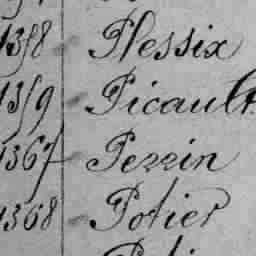 1358 Plessix
1359 Picault
1367 Perrin
1368 Potier